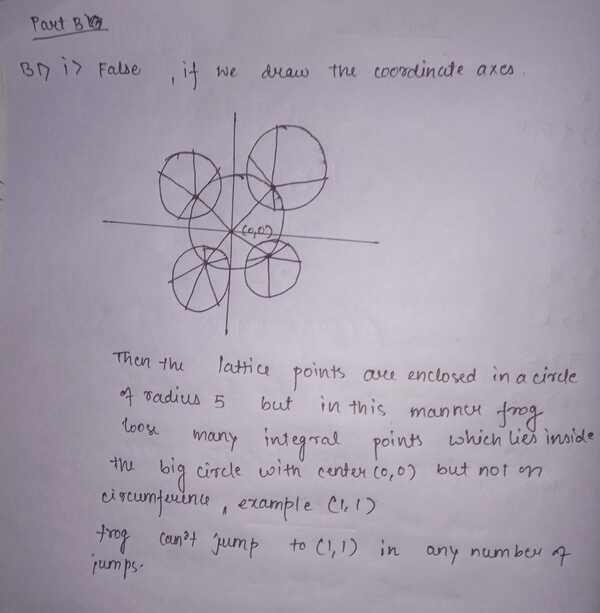 Part B
B1) i) False , if we draw the coordinate axes.
(0,0)
Then the lattice points are enclosed in a circle
of radius 5 but in this manner frog
loose many integral points which lies inside
the big circle with center (0,0) but not on
circumference, example (1,1)
frog can't jump to (1,1) in any number of
jumps.